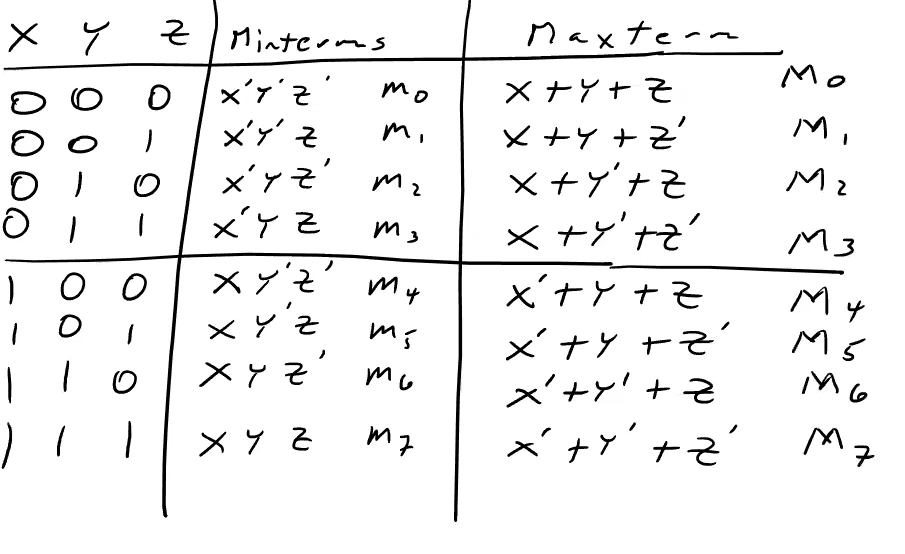 X Y Z Minterms Maxterm
0 0 0 X'Y'Z' m0 X+Y+Z M0
0 0 1 X'Y'Z m1 X+Y+Z' M1
0 1 0 X'YZ' m2 X+Y'+Z M2
0 1 1 X'YZ m3 X+Y'+Z' M3
1 0 0 XY'Z' m4 X'+Y+Z M4
1 0 1 XY'Z m5 X'+Y+Z' M5
1 1 0 XYZ' m6 X'+Y'+Z M6
1 1 1 XYZ m7 X'+Y'+Z' M7